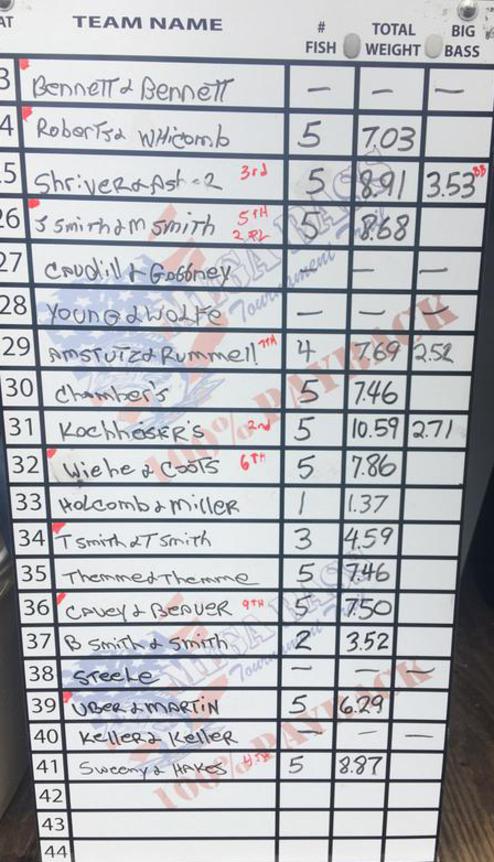 AT TEAM NAME # FISH TOTAL WEIGHT BIG BASS
3 Bennett & Bennett — — —
4 Roberts & Whicomb 5 7.03
5 Shriver & Ash 3rd 5 8.91 3.53 BB
26 J Smith & M Smith 5TH 2 PL 5 8.68
27 Caudill & — — —
28 Young & Wolfe — — —
29 Amstutz & Rummell 7TH 4 7.69 2.52
30 Chamber's 5 7.46
31 2nd 5 10.59 2.71
32 Wiehe & Coots 6TH 5 7.86
33 Holcomb & Miller 1 1.37
34 T Smith & T Smith 3 4.59
35 Themme & Themme 5 7.46
36 Cavey & Beaver 9TH 5 7.50
37 B Smith & Smith 2 3.52
38 Steele — — —
39 Uber & Martin 5 6.29
40 Keller & Keller — — —
41 Sweeny & Hakes 5 8.87
42
43
44
MEGA BASS
Tournament
100% PAYBACK
MEGA BASS
Tournament
100% PAYBACK